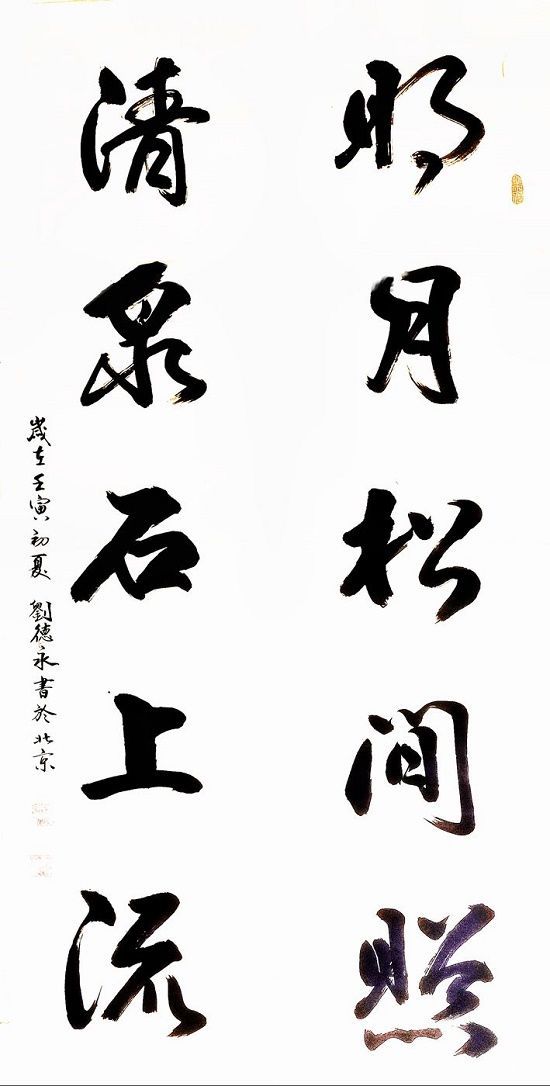 明月松間照
清泉石上流
歲在壬寅初夏 劉德永書於北京